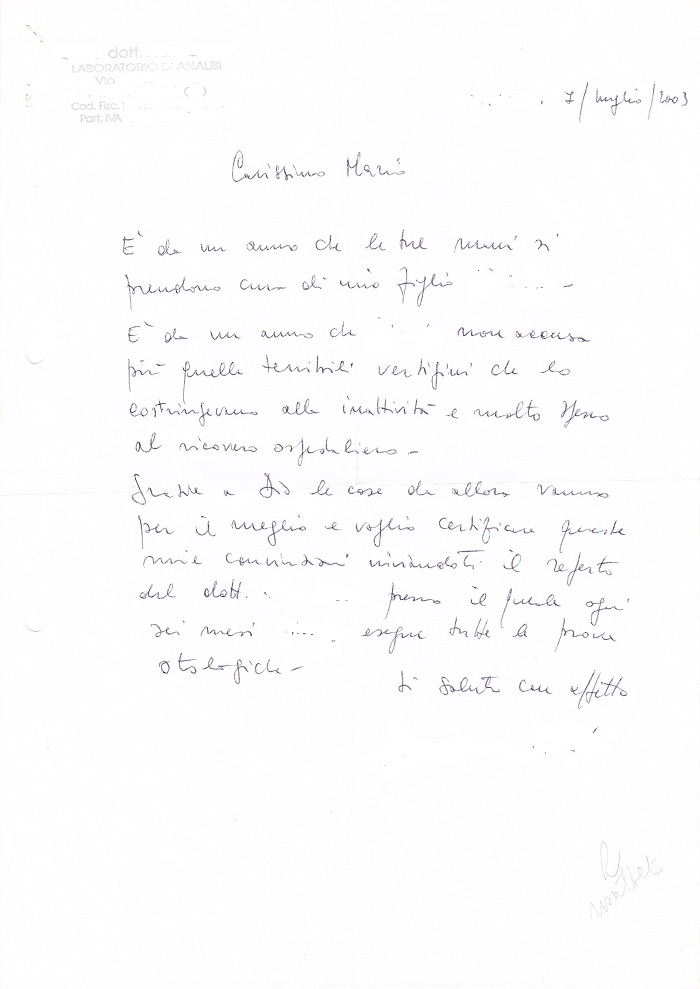 dott.
LABORATORIO DI ANALISI
Via
( )
Cod. Fisc.
Part. IVA
7/luglio/2003
Carissimo Mario
E' da un anno che le tue mani si
prendono cura di mio figlio
E' da un anno che non accusa
più quelle terribili vertigini che lo
costringevano alla inattività e molto spesso
al ricovero ospedaliero -
Grazie a Dio le cose da allora vanno
per il meglio e voglio certificare queste
mie convinzioni inviandoti il referto
del dott. presso il quale ogni
sei mesi esegue tutte le prove
otologiche -
ti saluto con affetto